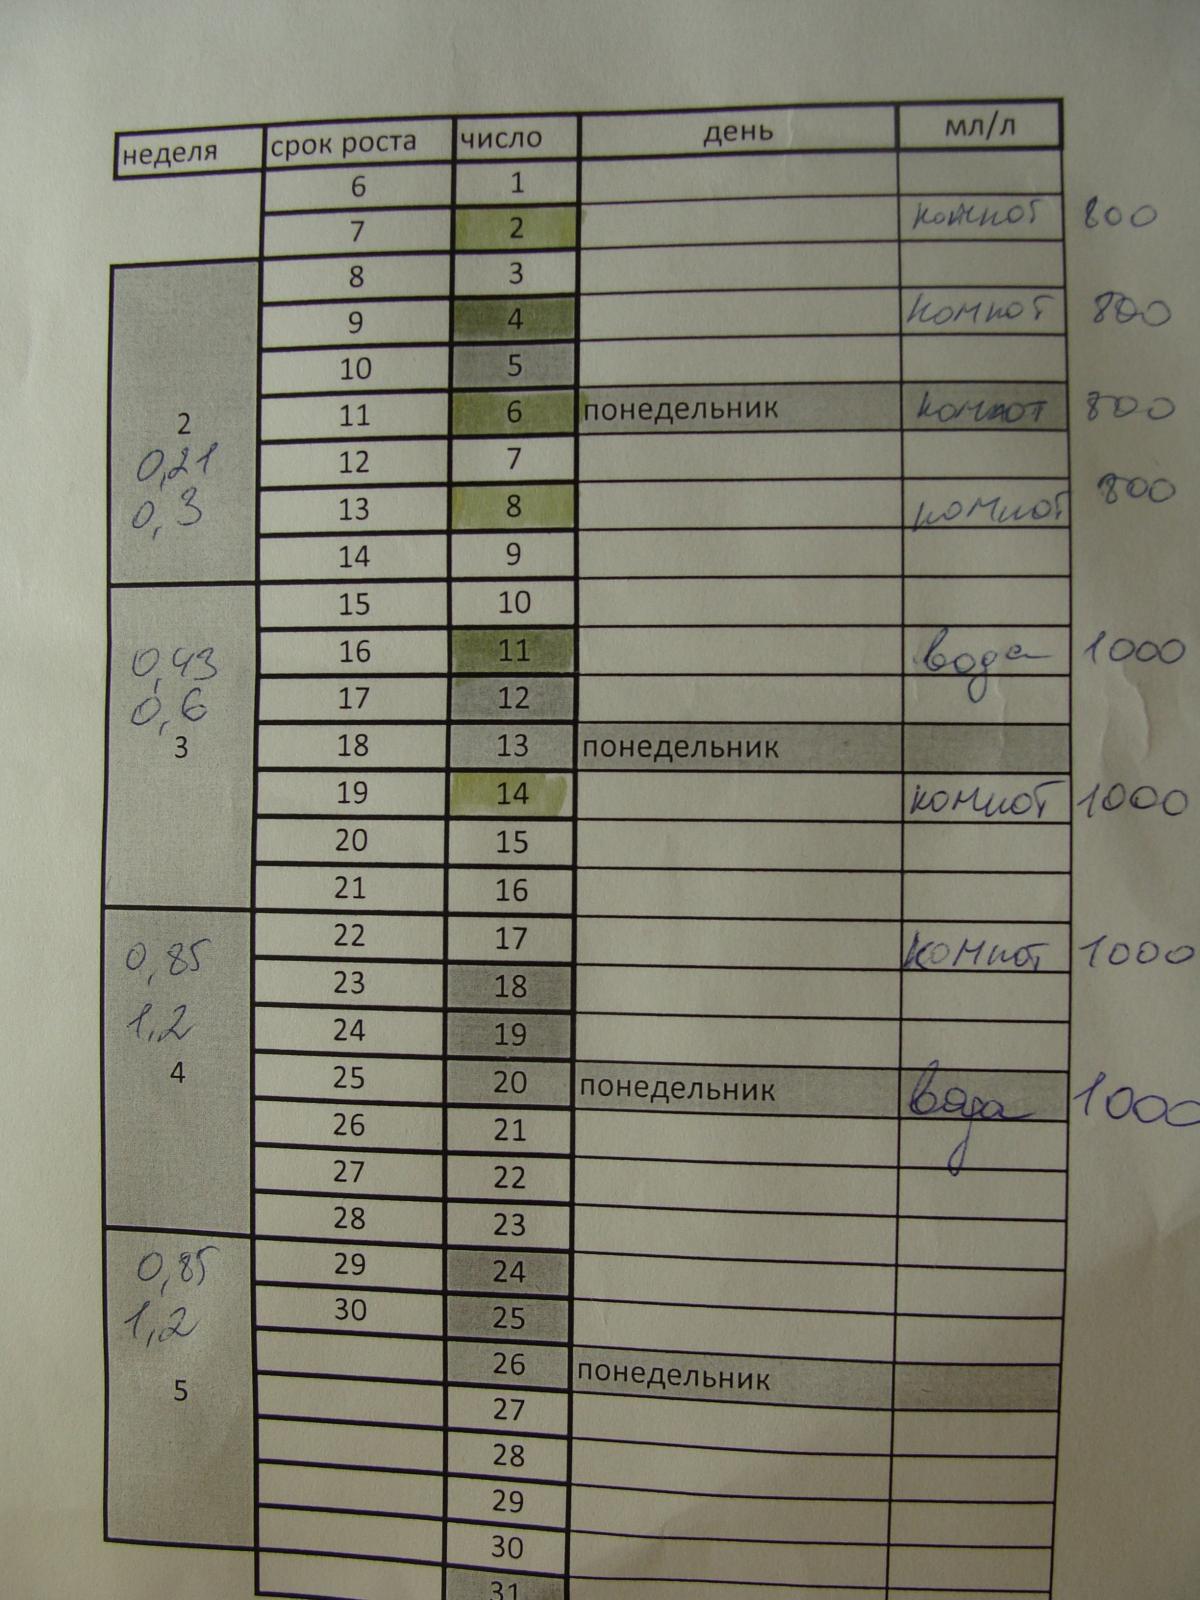 неделя срок роста число день мл/л
6 1
7 2 компот 800
8 3
9 4 компот 800
10 5
11 6 понедельник компот 800
2
12 7
0,21
13 8 компот 800
0,3
14 9
15 10
16 11 вода 1000
0,43
17 12
0,6
18 13 понедельник
3
19 14 компот 1000
20 15
21 16
22 17 компот 1000
0,85
23 18
24 19
1,2
25 20 понедельник вода 1000
4
26 21
27 22
28 23
29 24
0,85
30 25
1,2
26 понедельник
5
27
28
29
30
31